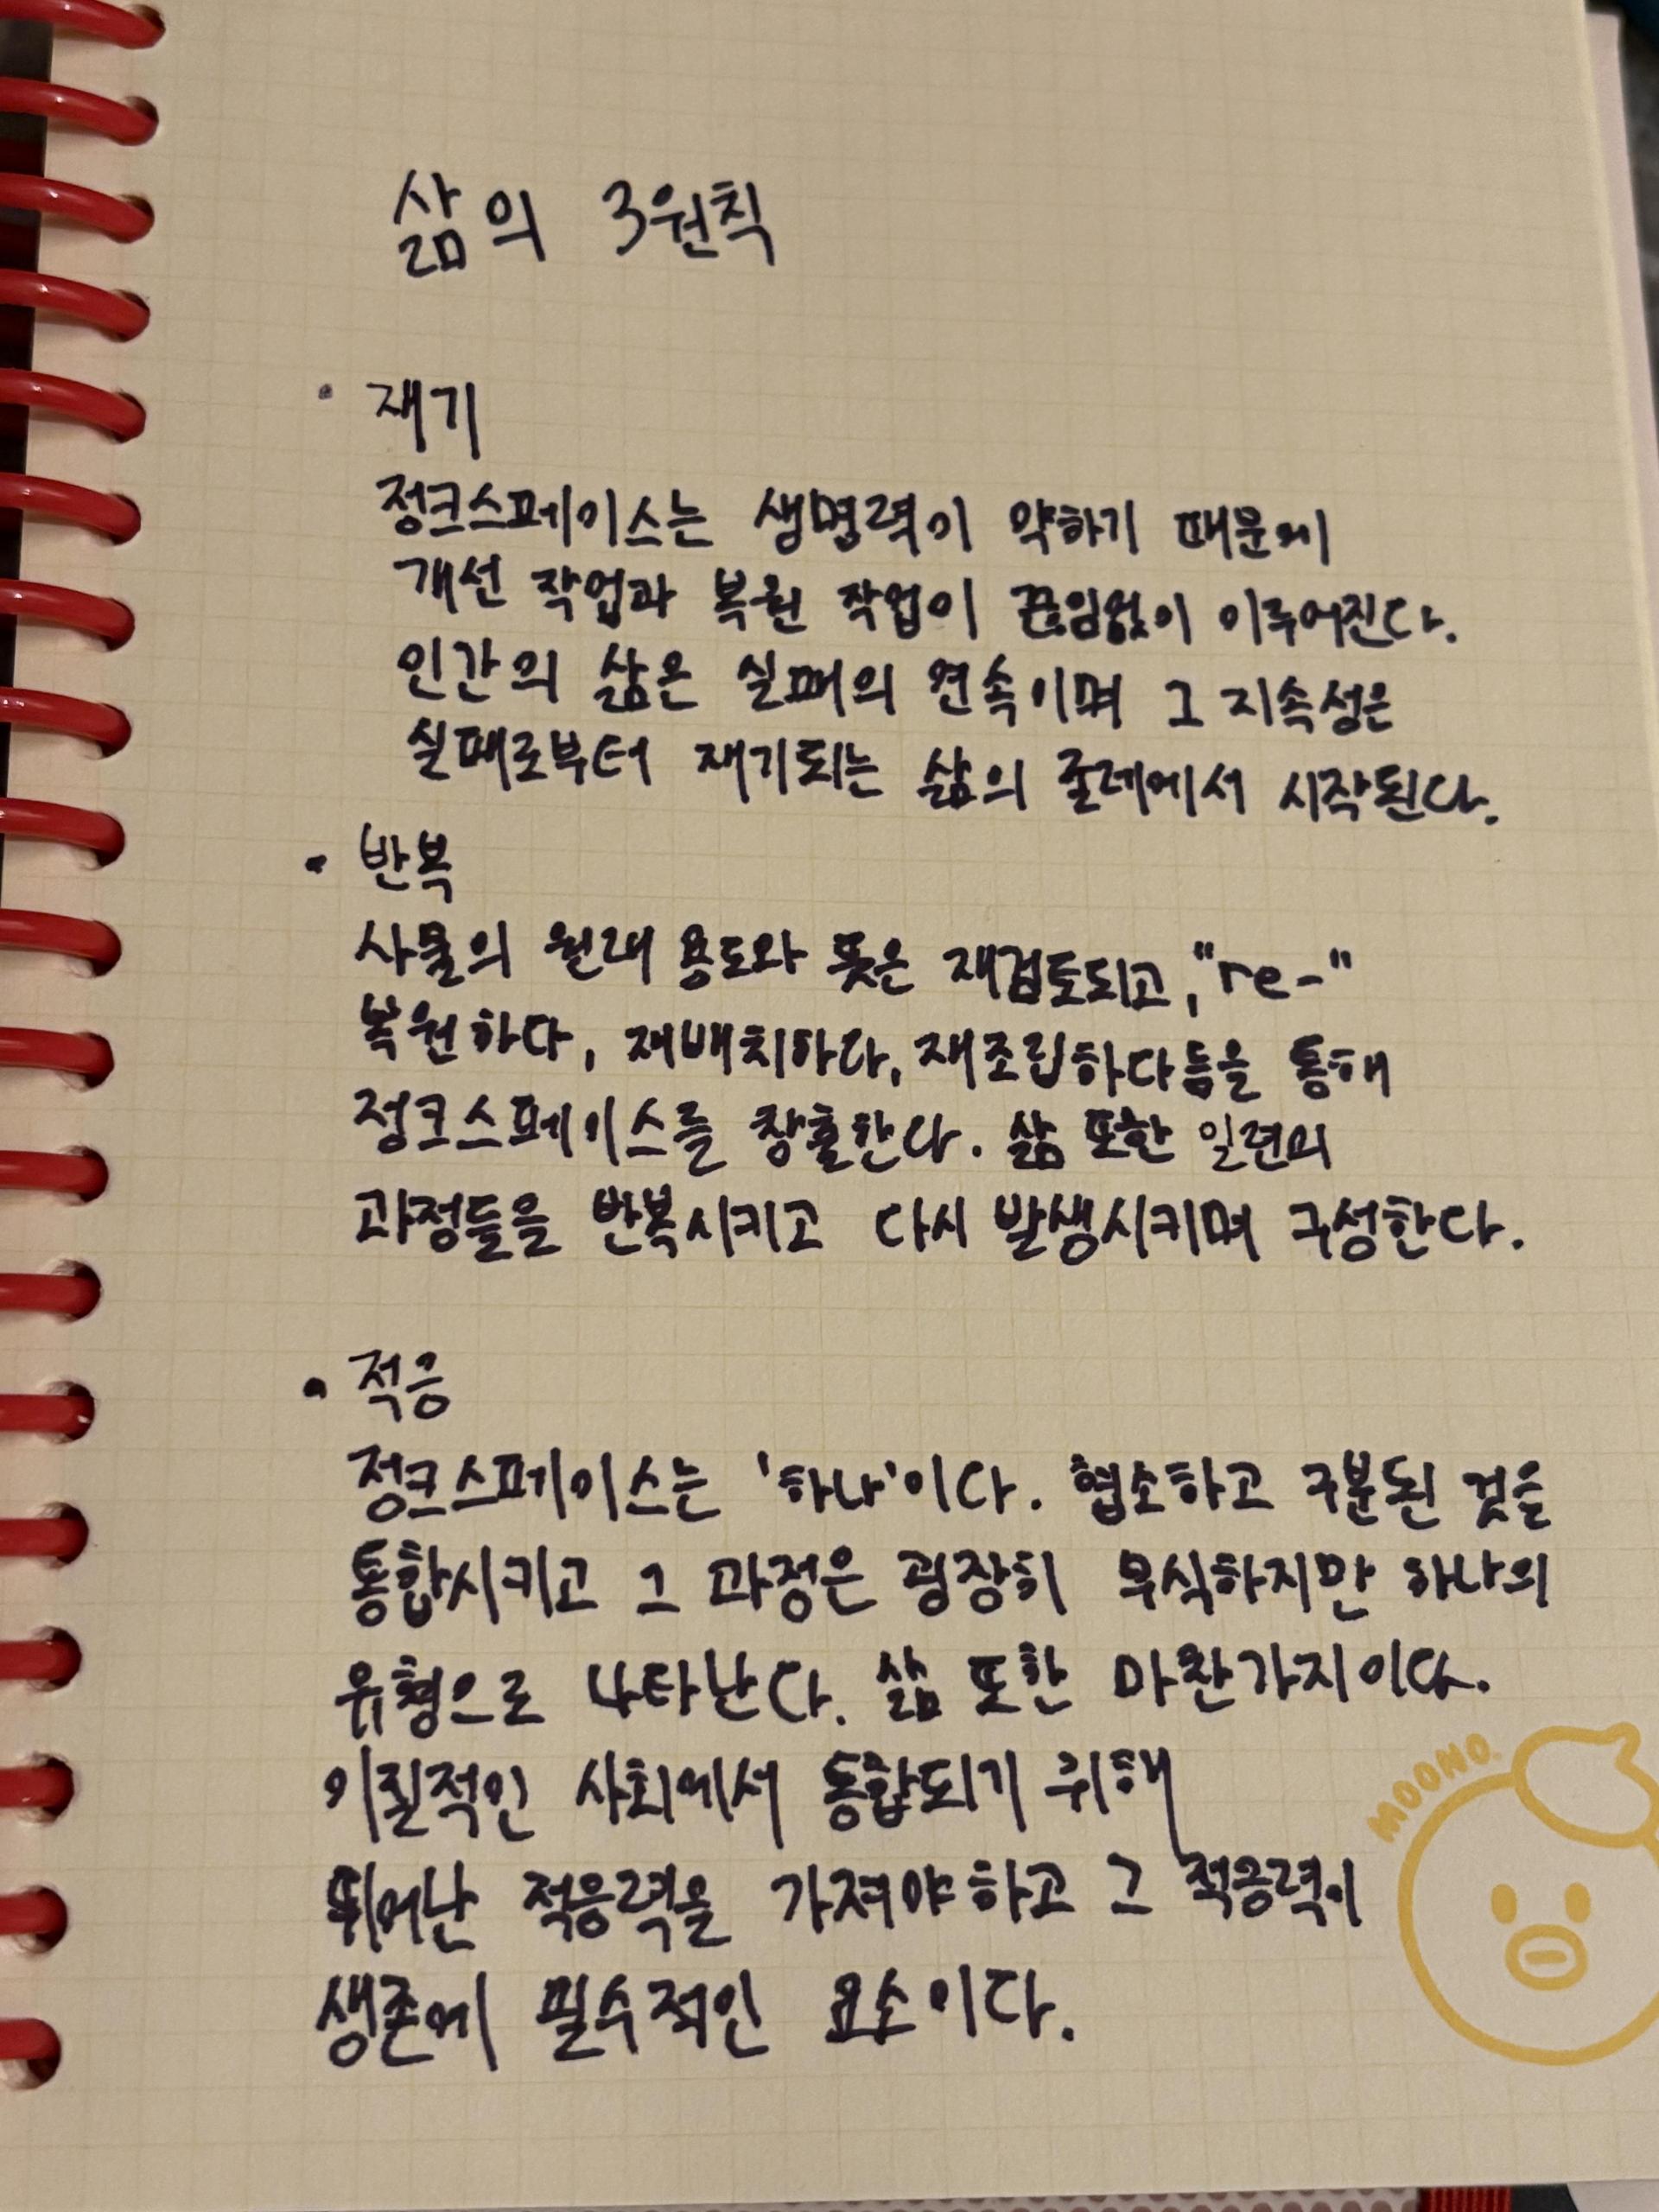 삶의 3원칙
· 재기
정크스페이스는 생명력이 약하기 때문에
개선 작업과 복원 작업이 끊임없이 이루어진다.
인간의 삶은 실패의 연속이며 그 지속성은
실패로부터 재기되는 삶의 굴레에서 시작된다.
· 반복
사물의 원래 용도와 뜻은 재검토되고, "re-"
복원하다, 재배치하다, 재조립하다 등을 통해
정크스페이스를 창출한다. 삶 또한 일련의
과정들을 반복시키고 다시 발생시키며 구성한다.
· 적응
정크스페이스는 '하나'이다. 협소하고 구분된 것을
통합시키고 그 과정은 굉장히 무식하지만 하나의
유형으로 나타난다. 삶 또한 마찬가지이다.
이질적인 사회에서 통합되기 위해
뛰어난 적응력을 가져야하고 그 적응력이
생존에 필수적인 요소이다.
MOONO.